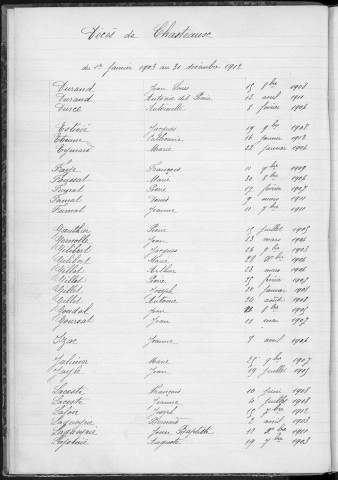 Décès de Chasteaux
du 1er Janvier 1903 au 31 décembre 1912
Durand Jean Louis 15 8bre 1908
Durand Antoine dit Pierre 12 avril 1911
Durce Antoinette 8 février 1906
Estève Jacques 19 9bre 1908
Etienne Catherine 16 janvier 1912
Eymard Marie 22 janvier 1906
Faye François 11 9bre 1909
Marie 1906
Peyrat Pierre 17 février 1907
Famat 9 mars 1911
Fumat Jeanne 11 9bre 1911
Gauthier Pierre 15 juillet 1905
Jean 23 mars 1906
Gilibert Jacques 26 9bre 1903
Gilibert Marie 28 Xbre 1906
Gillet Arthur 23 mars 1906
Gillet Pierre 15 février 1907
Gillet Joseph 20 janvier 1908
Gillet Antoine 20 août 1908
Goudal Jean 26 8bre 1905
Goursat Jean 11 mai 1907
Izac Jeanne 8 avril 1906
Jalinier Marie 25 9bre 1907
Jayle Jean 19 juillet 1905
Lacoste François 10 juin 1908
Lacoste Jeanne 16 juillet 1908
Lafon Joseph 15 7bre 1912
2 avril 1903
Jean Baptiste 12 Xbre 1911
Auguste 19 7bre 1903